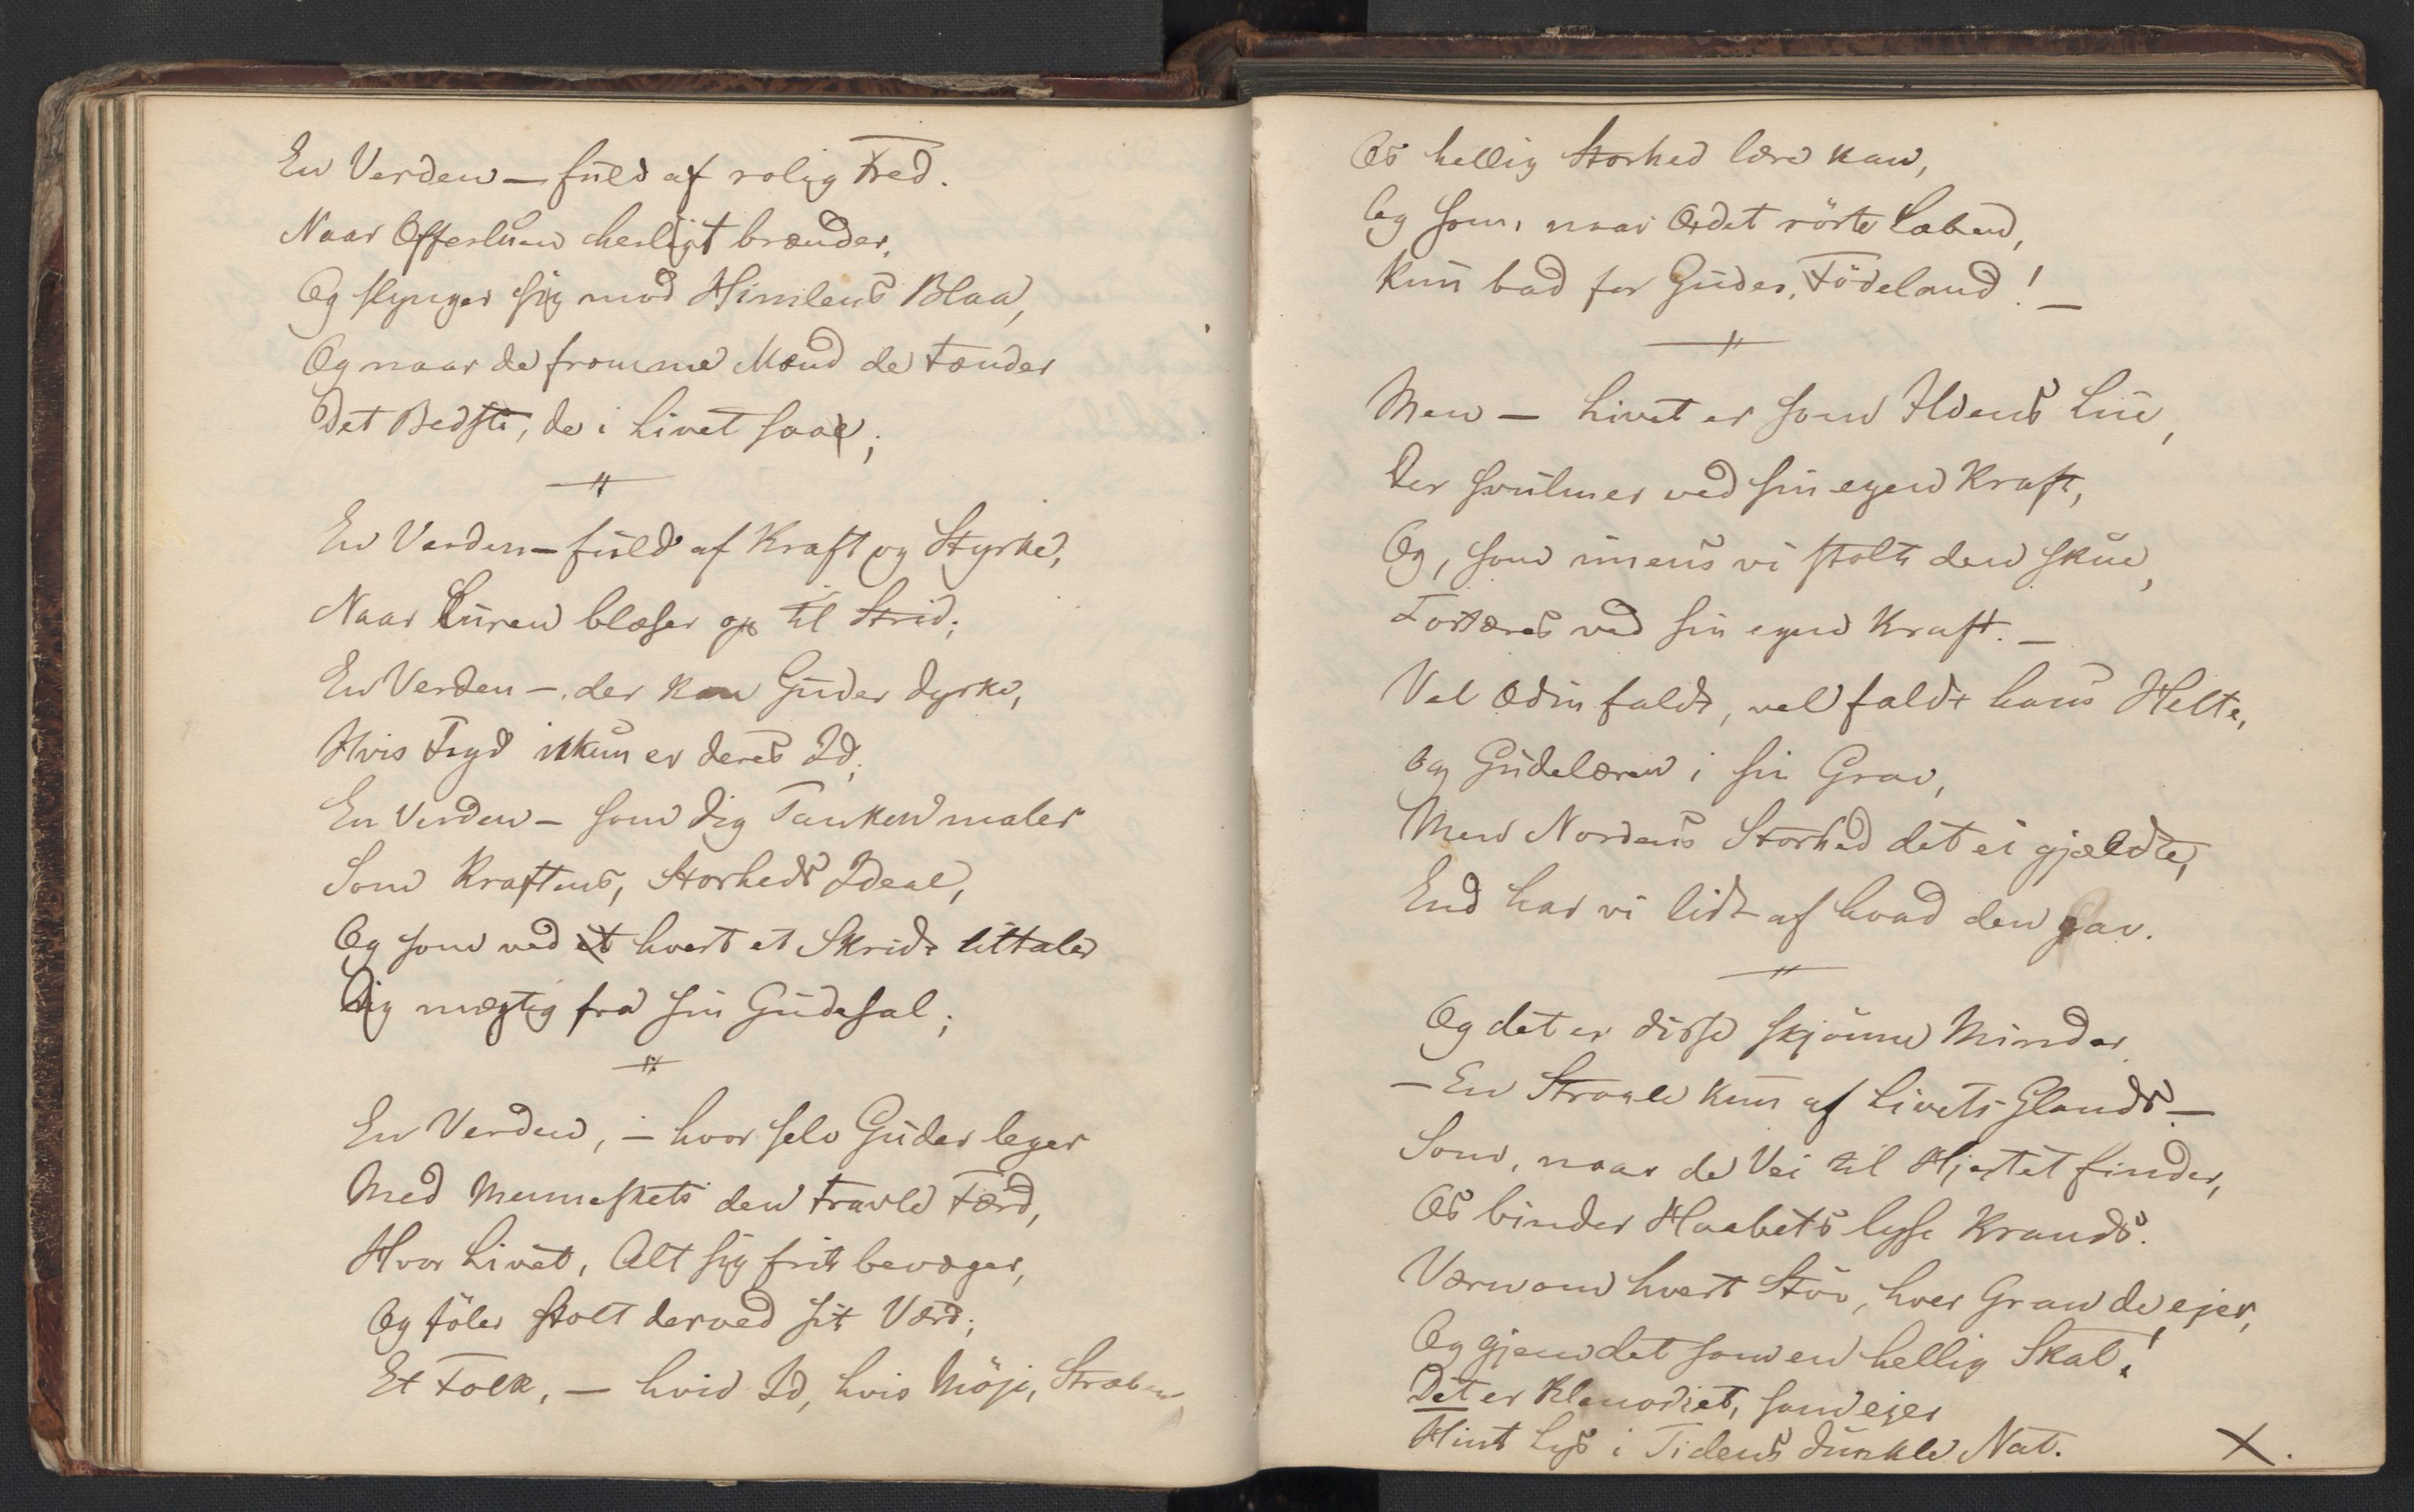 En Verden – fuld af rolig Fred.
Naar Offerluen herligt brænder,
Og slynger sig mod Himlens Blaa,
Og naar de fromme Mænd de tænder
Det Bedste, de i Livet saae;
En Verden – fuld af Kraft og Styrke,
Naar Luren blæser op til Strid;
En Verden – der kan Guder dyrke,
Hvis Fryd ikkun er deres Id;
En Verden – som dig Tanken maler
Som Kraftens, Storheds Ideal,
Og som ved hvert et Skridt tiltaler
Dig mægtig fra sin Gudesal;
En Verden, – hvor selv Guder leger
Med Menneskets den travle Færd,
Hvor Livet, Alt sig frit bevæger,
Og föler stolt derved sit Værd;
Et Folk, – hvis Id, hvis Möje, Stræben
Os hellig Storhed lære kan,
Og som, naar Ordet rörte Læben,
Kun bad for Guder, Födeland! –
Men – Livet er som Ildens Lue,
Der svulmer ved sin egen Kraft,
Og, som imens vi stolte den skue,
Fortæres ved sin egen Kraft. –
Vel Odin faldt, vel faldt hans Helte,
Og Gudelæren i sin Grav,
Men Nordens Storhed det ei gjældte,
End har vi lidt af hvad den gav.
Og det er disse skjönne Minder
– En Straale kun af Livets Glands –
Som, naar de Vei til Hjertet finder,
Os binder Haabets lyse Krands.
Værn om hvert Stöv, hver Gran de ejer,
Og gjem det som en hellig Skat!
Det er Klenodiet, som ejer
Hint Lys i Tidens dunkle Nat.
X.